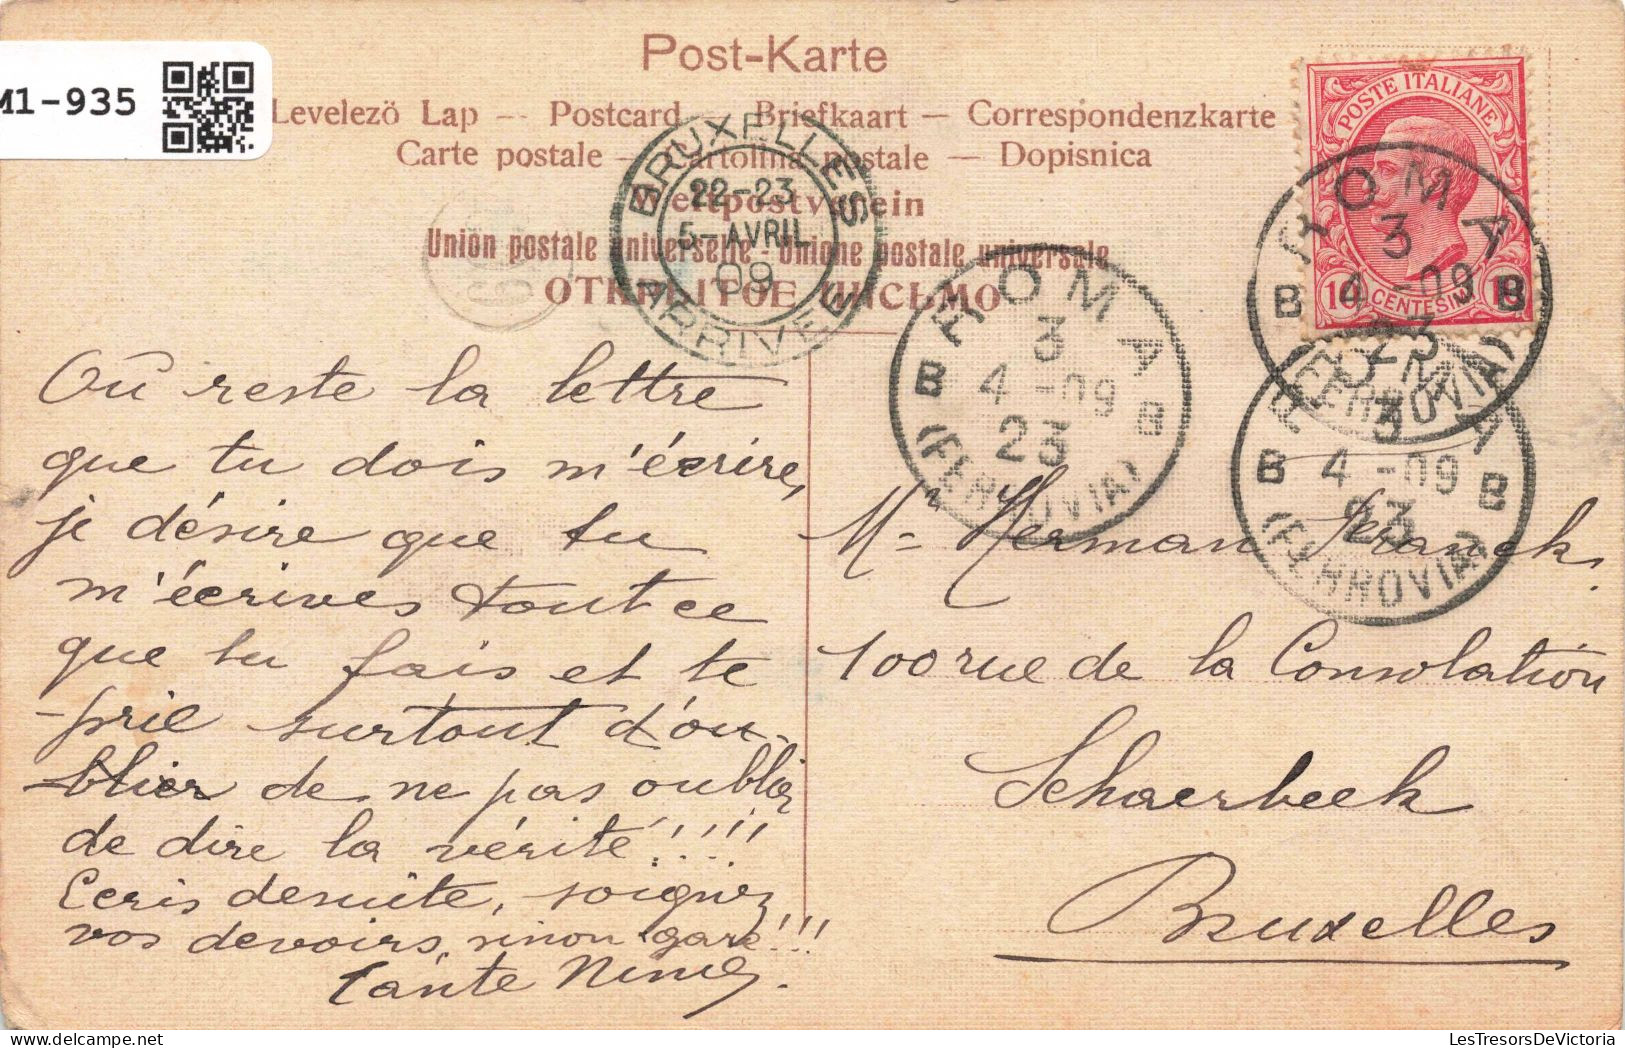 M1-935
Post-Karte
Levelezö Lap -- Postcard -- Briefkaart — Correspondenzkarte
Carte postale — Cartolina postale — Dopisnica
Weltpostverein
Union postale universelle - Unione postale universale
ОТКРЫТОЕ ПИСЬМО
BRUXELLES
22-23
5-AVRIL
09
ARRIVEE
POSTE ITALIANE
10 CENTESIMI 10
ROMA
3
4 -09
23
B B
(FERROVIA)
ROMA
3
4 -09
23
B B
(FERROVIA)
ROMA
3
4 -09
23
B B
(FERROVIA)
Où reste la lettre
que tu dois m'écrire,
je désire que tu
m'écrives tout ce
que tu fais et te
prie surtout d'ou-
blier de ne pas oublier
de dire la vérité!!!!
Ecris desuite, soignez
vos devoirs, sinon gare!!!
Tante Ninie.
Mr Herman Franck.
100 rue de la Consolation
Schaerbeek
Bruxelles
LesTresorsDeVictoria